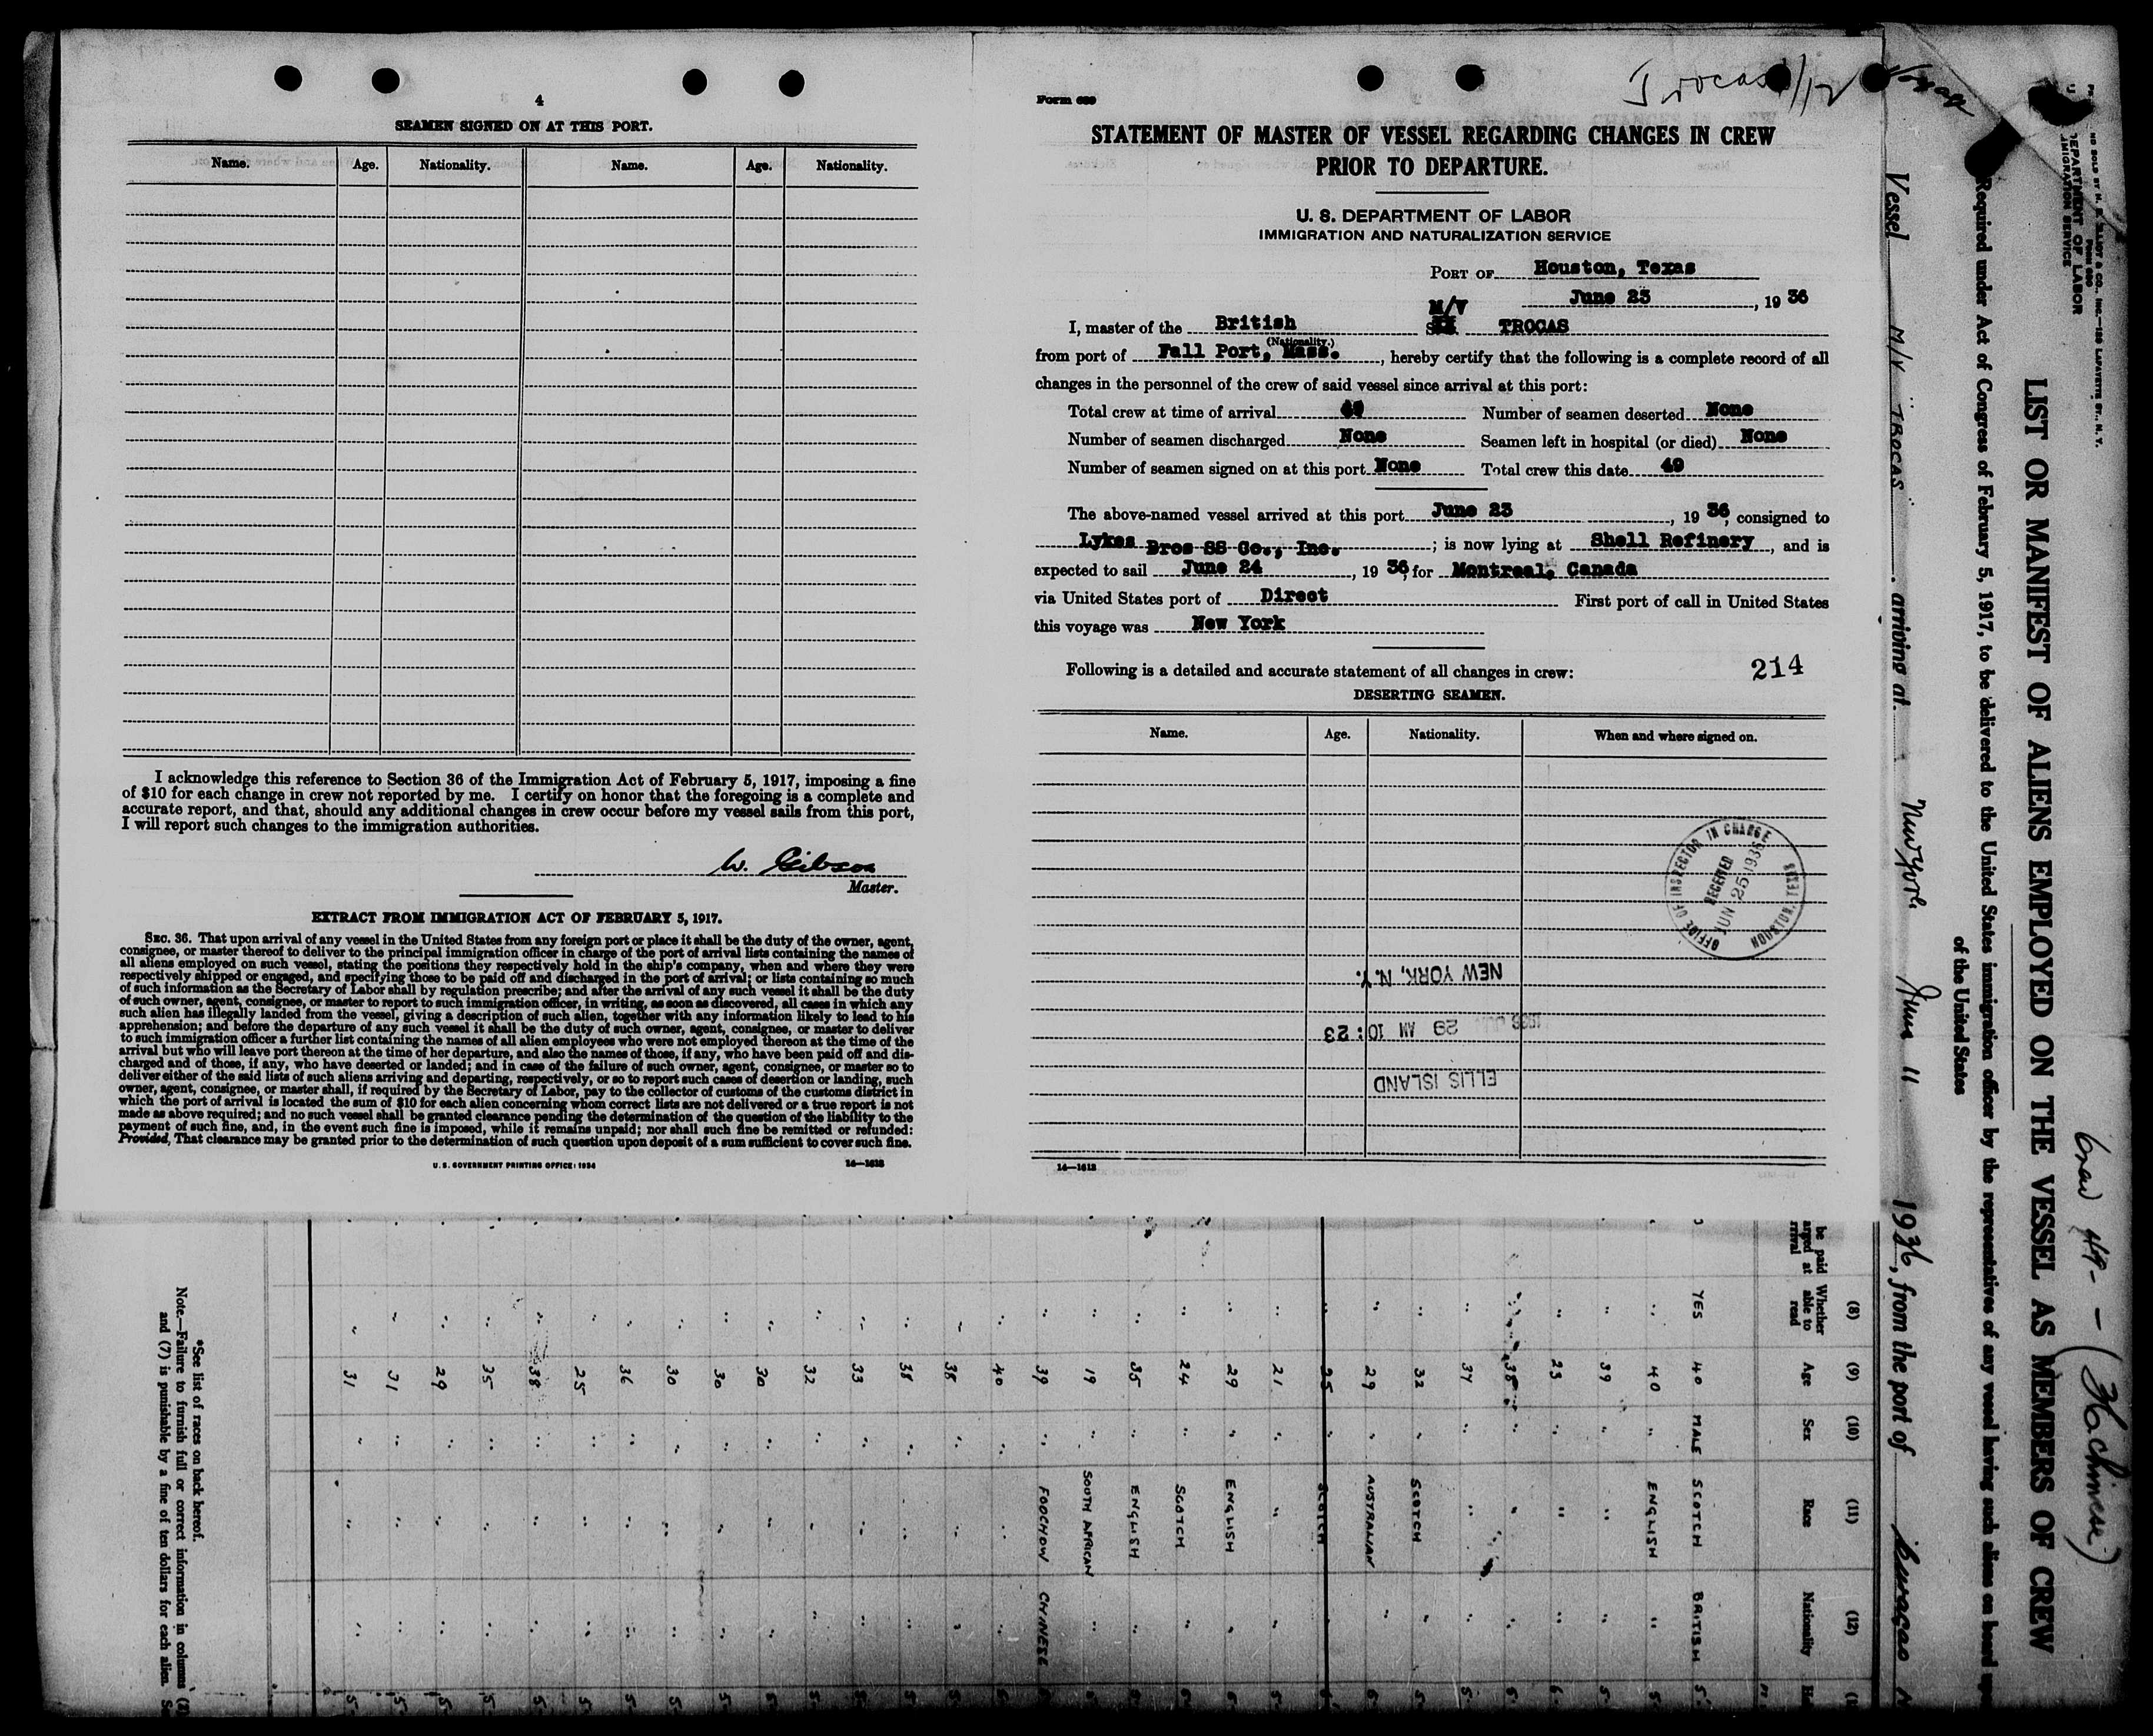 4
SEAMEN SIGNED ON AT THIS PORT.
Name. Age. Nationality. Name. Age. Nationality.
I acknowledge this reference to Section 36 of the Immigration Act of February 5, 1917, imposing a fine
of $10 for each change in crew not reported by me. I certify on honor that the foregoing is a complete and
accurate report, and that, should any additional changes in crew occur before my vessel sails from this port,
I will report such changes to the immigration authorities.
W. Gibson
Master.
EXTRACT FROM IMMIGRATION ACT OF FEBRUARY 5, 1917.
SEC. 36. That upon arrival of any vessel in the United States from any foreign port or place it shall be the duty of the owner, agent,
consignee, or master thereof to deliver to the principal immigration officer in charge of the port of arrival lists containing the names of
all aliens employed on such vessel, stating the positions they respectively hold in the ship's company, when and where they were
respectively shipped or engaged, and specifying those to be paid off and discharged in the port of arrival; or lists containing so much
of such information as the Secretary of Labor shall by regulation prescribe; and after the arrival of any such vessel it shall be the duty
of such owner, agent, consignee, or master to report to such immigration officer, in writing, as soon as discovered, all cases in which any
such alien has illegally landed from the vessel, giving a description of such alien, together with any information likely to lead to his
apprehension; and before the departure of any such vessel it shall be the duty of such owner, agent, consignee, or master to deliver
to such immigration officer a further list containing the names of all alien employees who were not employed thereon at the time of the
arrival but who will leave port thereon at the time of her departure, and also the names of those, if any, who have been paid off and dis-
charged and of those, if any, who have deserted or landed; and in case of the failure of such owner, agent, consignee, or master so to
deliver either of the said lists of such aliens arriving and departing, respectively, or so to report such cases of desertion or landing, such
owner, agent, consignee, or master shall, if required by the Secretary of Labor, pay to the collector of customs of the customs district in
which the port of arrival is located the sum of $10 for each alien concerning whom correct lists are not delivered or a true report is not
made as above required; and no such vessel shall be granted clearance pending the determination of the question of the liability to the
payment of such fine, and, in the event such fine is imposed, while it remains unpaid; nor shall such fine be remitted or refunded:
Provided, That clearance may be granted prior to the determination of such question upon deposit of a sum sufficient to cover such fine.
U. S. GOVERNMENT PRINTING OFFICE: 1934 14—1613
Form 689
Trocas
STATEMENT OF MASTER OF VESSEL REGARDING CHANGES IN CREW
PRIOR TO DEPARTURE.
U. S. DEPARTMENT OF LABOR
IMMIGRATION AND NATURALIZATION SERVICE
PORT OF Houston, Texas
June 23, 1936
I, master of the British M/V TROCAS
(Nationality.)
from port of Fall Port, Mass., hereby certify that the following is a complete record of all
changes in the personnel of the crew of said vessel since arrival at this port:
Total crew at time of arrival 49 Number of seamen deserted None
Number of seamen discharged None Seamen left in hospital (or died) None
Number of seamen signed on at this port None Total crew this date 49
The above-named vessel arrived at this port June 23, 1936, consigned to
Lykes Bros SS Co., Inc.; is now lying at Shell Refinery, and is
expected to sail June 24, 1936, for Montreal, Canada
via United States port of Direct First port of call in United States
this voyage was New York
Following is a detailed and accurate statement of all changes in crew: 214
DESERTING SEAMEN.
Name. Age. Nationality. When and where signed on.
OFFICE OF INSPECTOR IN CHARGE
RECEIVED
JUN 25 1936
HOUSTON, TEXAS
NEW YORK, N.Y.
29 AM 10:23
ELLIS ISLAND
14—1613
DEPARTMENT OF LABOR
IMMIGRATION SERVICE
LIST OR MANIFEST OF ALIENS EMPLOYED ON THE VESSEL AS MEMBERS OF CREW
Crew 49 - (36 chinese)
Required under Act of Congress of February 5, 1917, to be delivered to the United States immigration officer by the representatives of any vessel having such aliens on board
of the United States
Vessel M/V TROCAS arriving at New York June 11 1936, from the port of Curacao
(8) (9) (10) (11) (12)
be paid Whether able to read Age Sex Race Nationality
YES 40 MALE SCOTCH BRITISH
" 40 " ENGLISH "
" 39 " " "
" 23 " " "
" 38 " " "
" 37 " " "
" 32 " SCOTCH "
" 29 " AUSTRALIAN "
" 25 " SCOTCH
" 21 " " "
" 29 " ENGLISH "
" 24 " SCOTCH "
" 35 " ENGLISH "
" 19 " SOUTH AFRICAN "
" 39 " FOOCHOW CHINESE
" 40 " " "
" 38 " " "
" 38 " " "
" 33 " " "
" 32 " " "
" 30 " " "
" 30 " " "
" 30 " " "
" 36 " " "
" 25 " " "
" 38 " " "
" 35 " " "
" 29 " " "
" 31 " " "
" 31 " " "
*See list of races on back hereof.
Note.—Failure to furnish full or correct information in columns
and (7) is punishable by a fine of ten dollars for each alien.